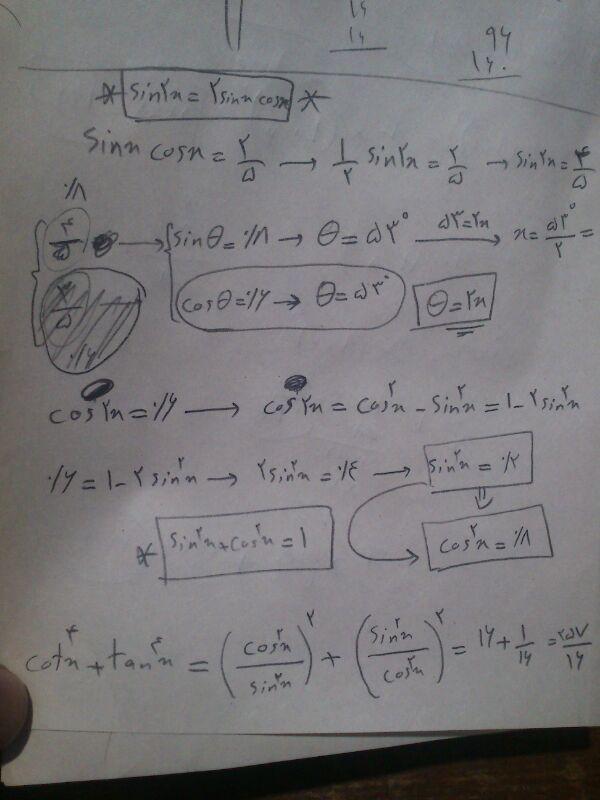 ۱۶
۱۶
۹۶
۱۶۰
* sin۲x = ۲sinx cosx *
sinx cosx = ۲/۵ → ۱/۲ sin۲x = ۲/۵ → sin۲x = ۴/۵
۰/۸
۴/۵ → sinθ = ۰/۸ → θ = ۵۳° ۵۳=۲x → x = ۵۳°/۲ =
۳/۵ cosθ = ۰/۶ → θ = ۵۳° θ = ۲x
۰/۶
cos۲x = ۰/۶ → cos۲x = cos²x - sin²x = ۱ - ۲sin²x
۰/۶ = ۱ - ۲sin²x → ۲sin²x = ۰/۴ → sin²x = ۰/۲
* sin²x + cos²x = ۱ ⇓ cos²x = ۰/۸
cot⁴x + tan⁴x = (cos²x/sin²x)² + (sin²x/cos²x)² = ۱۶ + ۱/۱۶ = ۲۵۷/۱۶